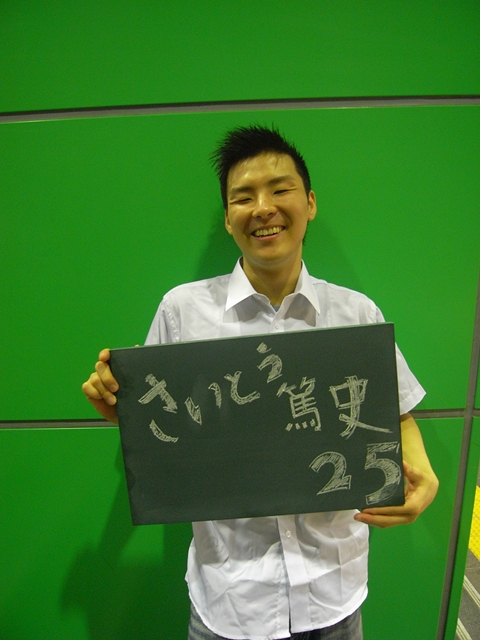 さいとう篤史
25